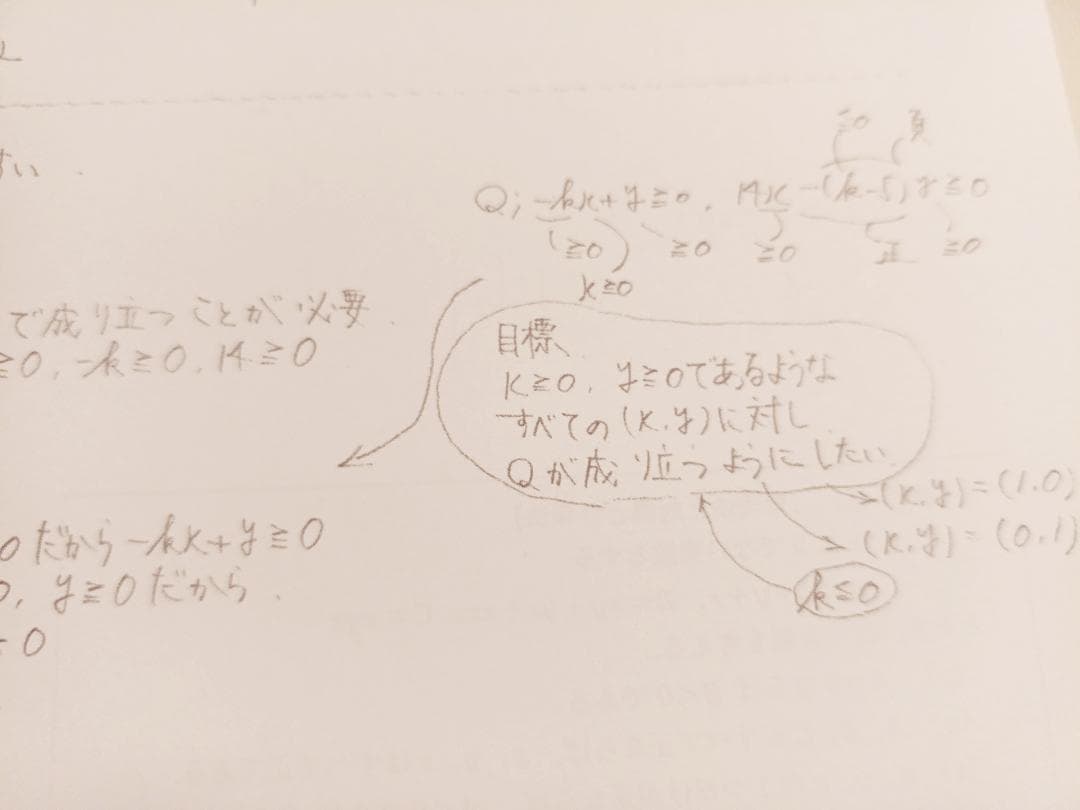 すい.
≧0 負
Q; -kx+y≧0, 14x-(k-5)y≧0
≧0 ≧0 ≧0 正 ≧0
x≧0
で成り立つことが必要.
≧0, -k≧0, 14≧0
目標
x≧0, y≧0であるような
すべての(x,y)に対し
Qが成り立つようにしたい
(x,y)=(1.0)
(x,y)=(0,1)
k≦0
0だから-kx+y≧0
, y≧0だから.
0